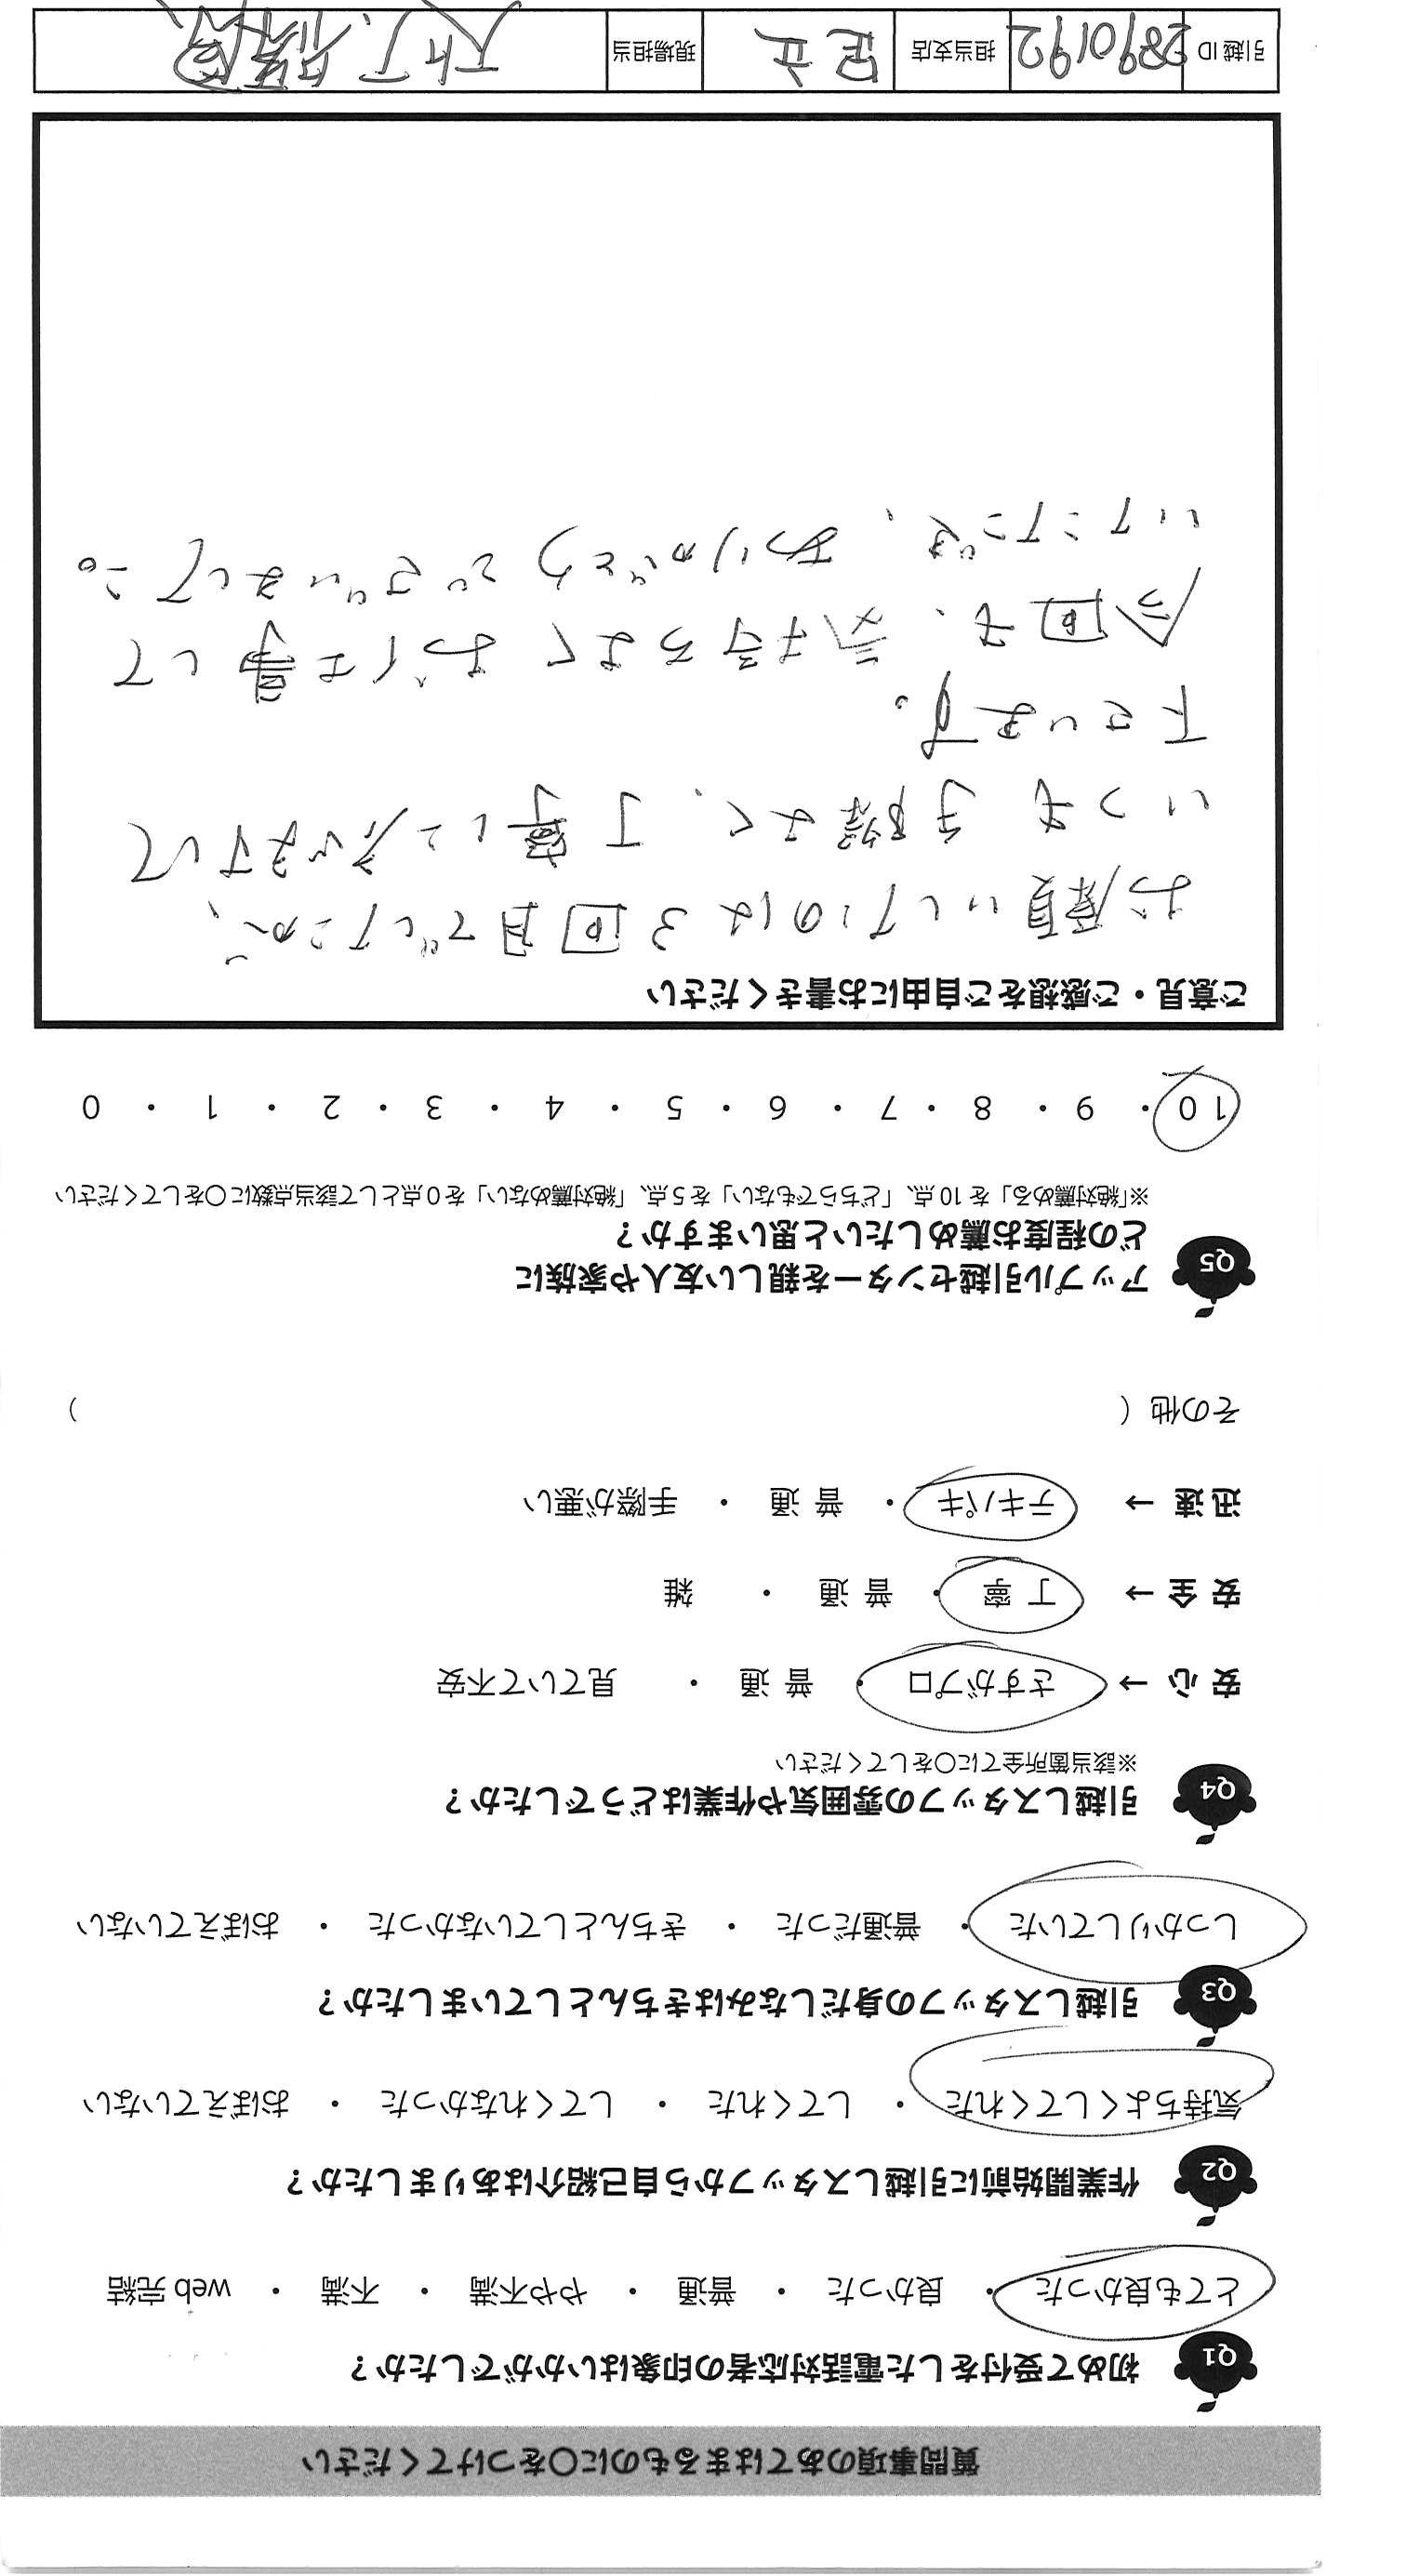 質問事項のあてはまるものに〇をつけてください
Q1 初めて受付をした電話対応者の印象はいかがでしたか？
とても良かった ・ 良かった ・ 普通 ・ やや不満 ・ 不満 ・ web 完結
Q2 作業開始前に引越しスタッフから自己紹介はありましたか？
気持ちよくしてくれた ・ してくれた ・ してくれなかった ・ おぼえていない
Q3 引越しスタッフの身だしなみはきちんとしていましたか？
しっかりしていた ・ 普通だった ・ きちんとしていなかった ・ おぼえていない
Q4 引越しスタッフの雰囲気や作業はどうでしたか？
※該当箇所全てに〇をしてください
安 心 → さすがプロ ・ 普 通 ・ 見ていて不安
安 全 → 丁 寧 ・ 普 通 ・ 雑
迅 速 → テキパキ ・ 普 通 ・ 手際が悪い
その他（ ）
Q5 アップル引越センターを親しい友人や家族に
どの程度お薦めしたいと思いますか？
※「絶対薦める」を 10 点、「どちらでもない」を 5 点、「絶対薦めない」を 0 点として該当点数に〇をしてください
10 ・ 9 ・ 8 ・ 7 ・ 6 ・ 5 ・ 4 ・ 3 ・ 2 ・ 1 ・ 0
ご意見・ご感想をご自由にお書きください
お願いしたのは3回目でしたが、
いつも手際よく、丁寧にして
下さいます。
今回も、気持ちよくお仕事して
いただき、ありがとうございました。
引越 ID 2890192 担当支店 足立 現場担当